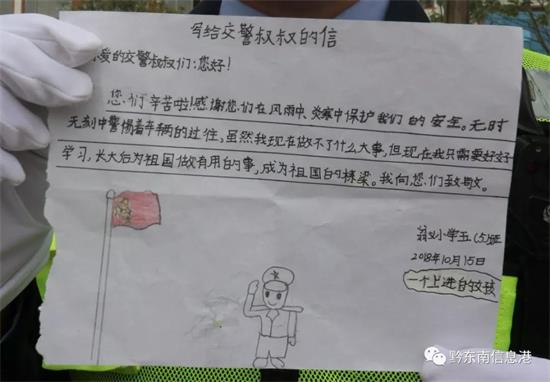 写给交警叔叔的信
爱的交警叔叔们:您好!
您们辛苦啦!感谢您们在风雨中、炎寒中保护我们的安全。无时
无刻中警惕着车辆的过往,虽然我现在做不了什么大事,但现在我只需要好好
学习,长大后为祖国做有用的事,成为祖国的栋梁。我向您们致敬。
小学五(5)班
2018年10月15日
一个上进的女孩
黔东南信息港